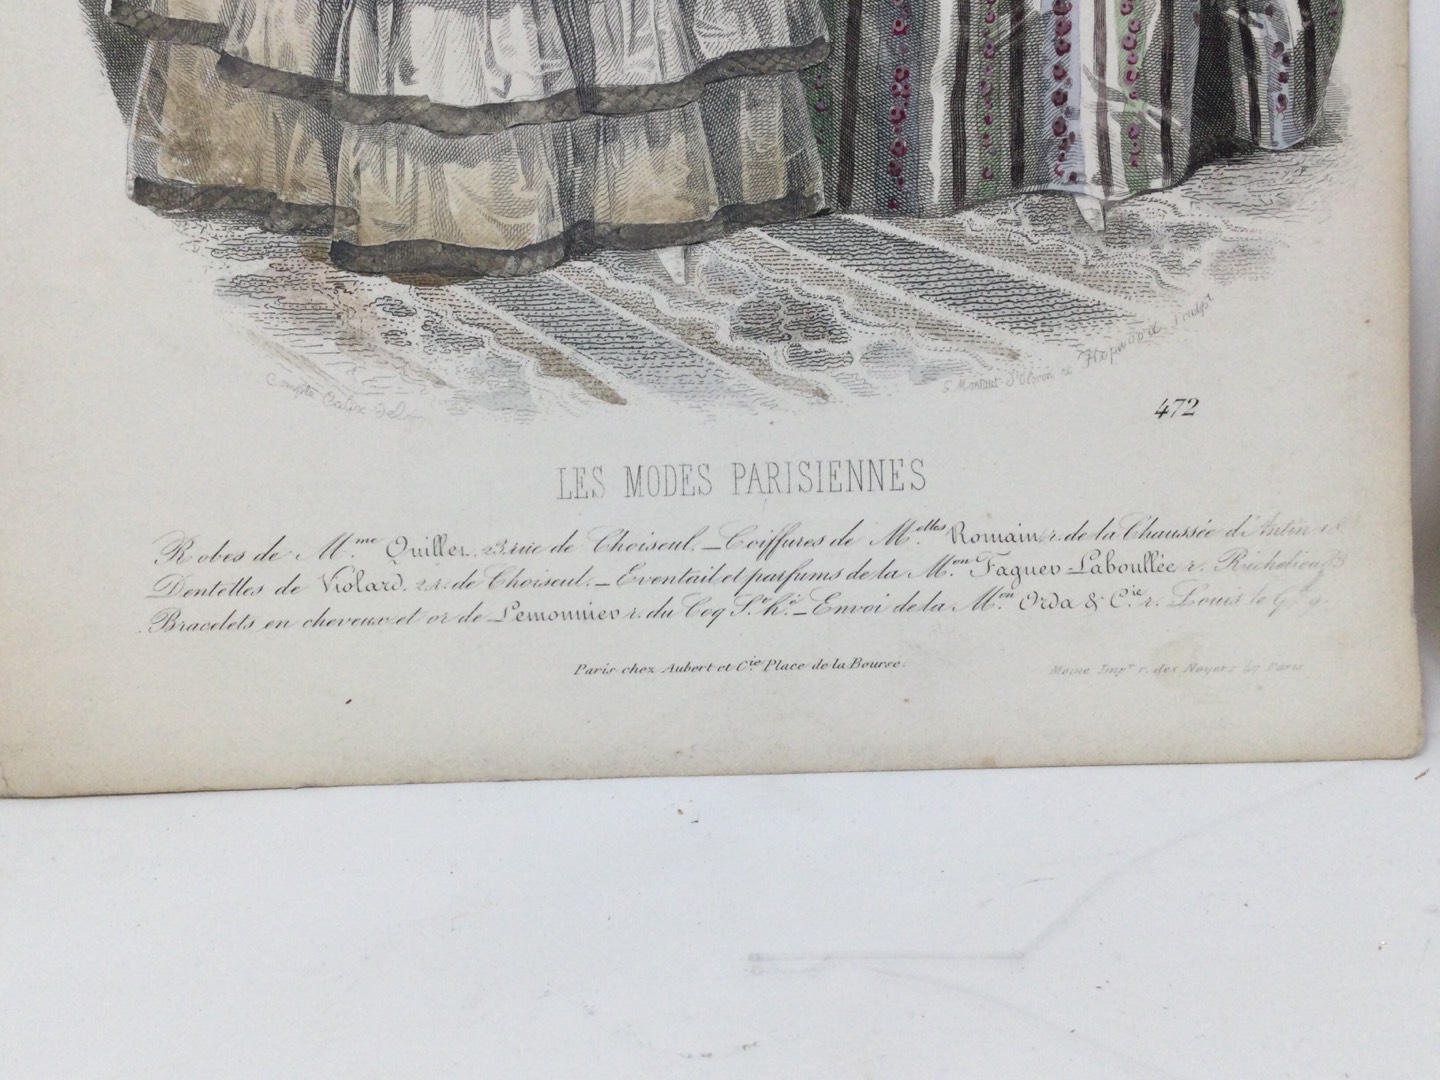 Compte Calix del
Hopwood Sculpt
472
LES MODES PARISIENNES
Robes de M.me Quillet. 23. rue de Choiseul. _ Coiffures de M.elles Romain r. de la Chaussée d'Antin
Dentelles de Violard. 2.r. de Choiseul. _ Eventail et parfums de la M.on Faguer-Laboullée r. Richelieu
Bracelets en cheveux et or de Lemonnier r. du Coq St. Ré. _ Envoi de la M.on Orda & C.ie r. Louis le
Paris chez Aubert et Cie. Place de la Bourse.
Moine Impr. r. des Noyers Paris